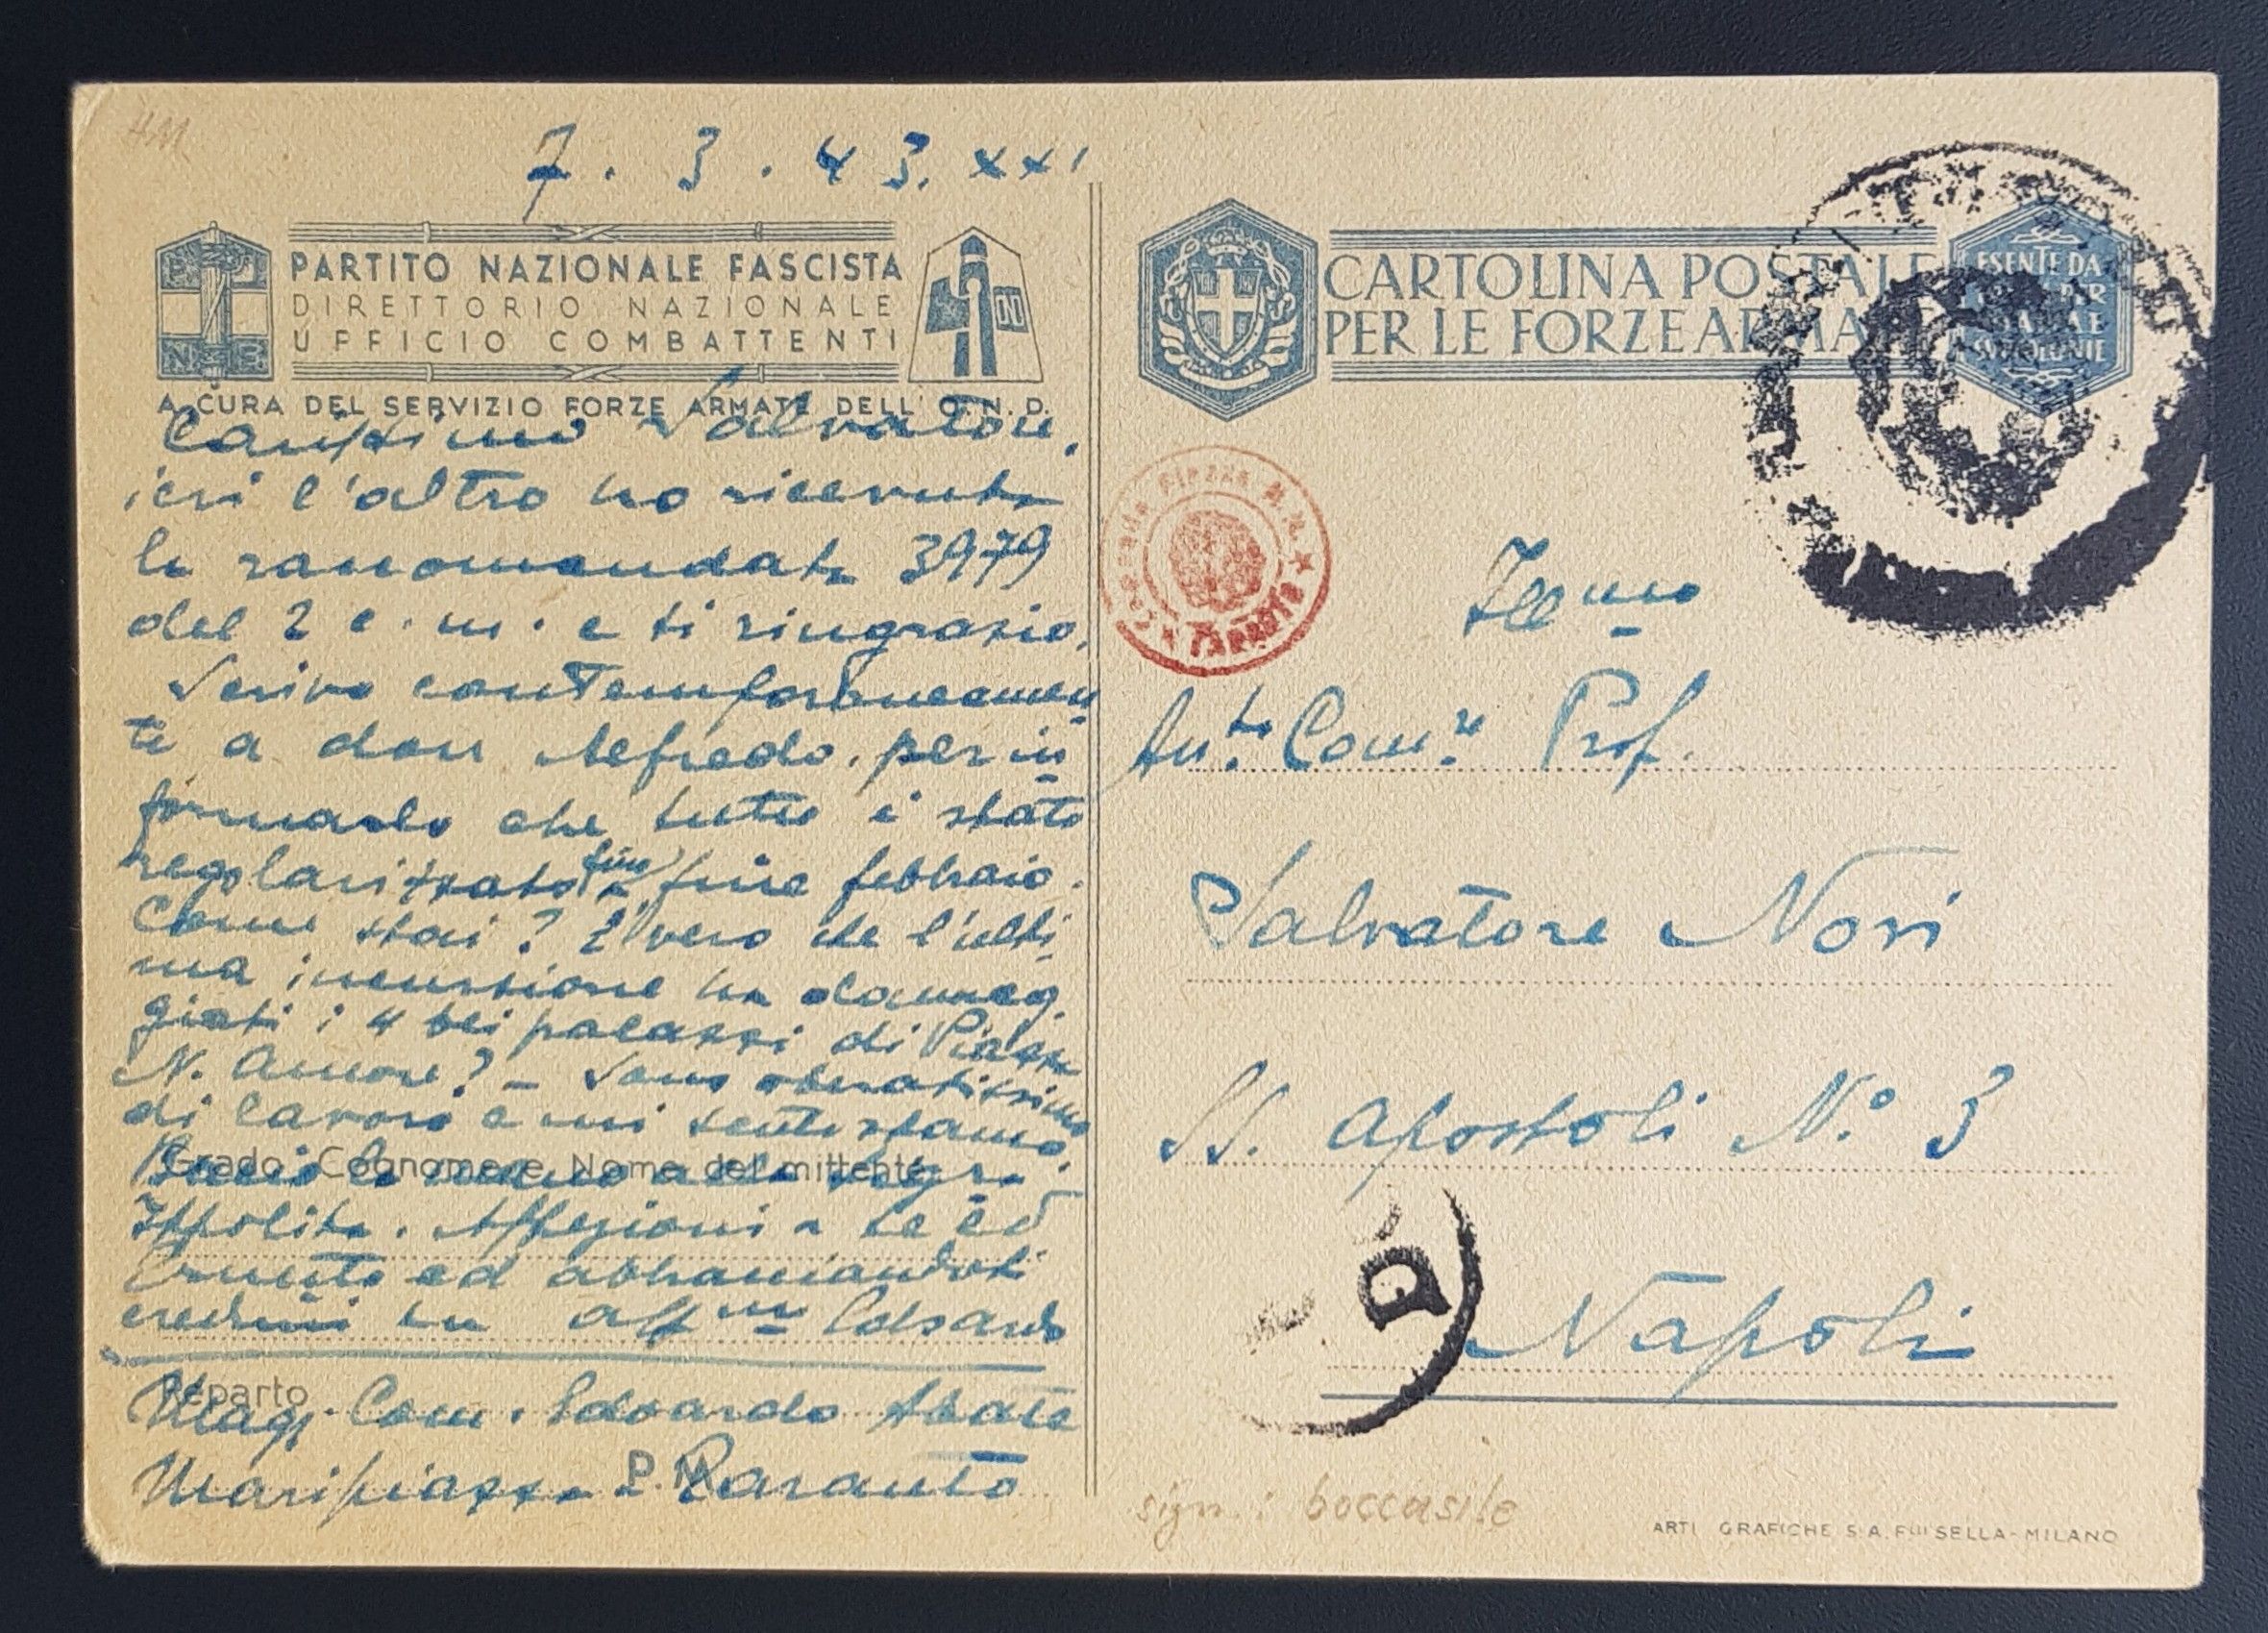 7 . 3 . 43. XXI
PARTITO NAZIONALE FASCISTA
DIRETTORIO NAZIONALE
UFFICIO COMBATTENTI
A CURA DEL SERVIZIO FORZE ARMATE DELL' O.N.D.
Carissimo Salvatore,
ieri l'altro ho ricevuta
la raccomandata 3979
del 2 c.m. e ti ringrazio.
Scrivo contemporaneamen
te a don Alfredo, per in
formarlo che tutto è stato
regolarizzato fine febbraio.
Come stai? È vero che l'ulti
ma incursione ha danneg
giati i 4 bei palazzi di Piazza
N. Amore? - Sono oberatissimo
di lavoro e mi sento stanco.
Grado, Cognome e Nome del mittente
Bacio la mano alla Sig.ra
Ippolita. Affezioni a te ed
ed abbracciandoti
credimi tu aff.mo Edoardo
Reparto
Mag. Com. Edoardo Abate
P. M.
Maripiazza Taranto
CARTOLINA POSTALE
PER LE FORZE ARMATE
ESENTE DA
TARANTO
Ill.mo
Av.to Com.re Prof.
Salvatore Novi
SS. Apostoli N.o 3
Napoli
sign.: boccasile
ARTI GRAFICHE S.A. F.lli SELLA - MILANO